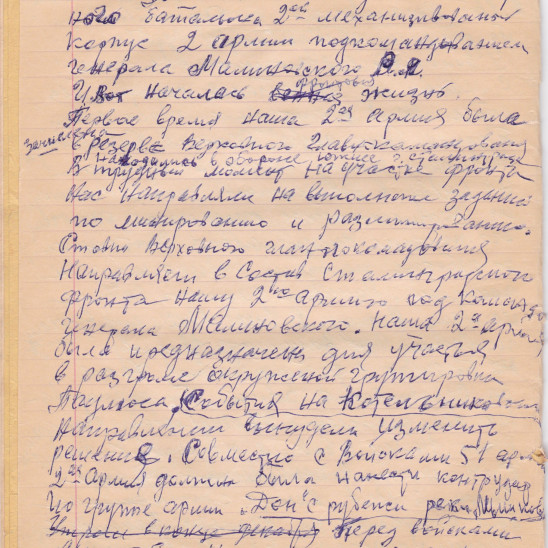 ного батальона 2ой механизированой
корпус 2 армии под командованием
генерала Малиновского Р.Я.
И началась фронтовая жизнь.
Первое время наша 2ая армия была
зачислена
в резерве Верховного Главнокомандования
находились в обороне южнее г. Сталинграда
В трудный момент на участке фронта
нас направляли на выполнение задания
по минированию и разминированию.
Ставка Верховного главнокомадования
Направляет в Состав Сталинградского
фронта нашу 2ую армию под команд
генерала Малиновского. Наша 2ая армия
была предназначена для участия
в разгроме окруженой группировки
Паулюса. События на Котельниковском
направлении вынудили изменить
решение. Совместно с войсками 51 арм
2ая Армия должна была нанести контрудар
по группе армии "Дон" с рубежа реки
в конце декабря Перед войсками